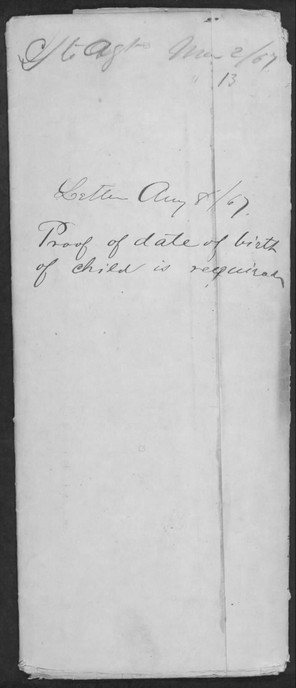 C/ to Agt Mar 2/67
13
Letter Aug 8/67.
Proof of date of birth
of child is required